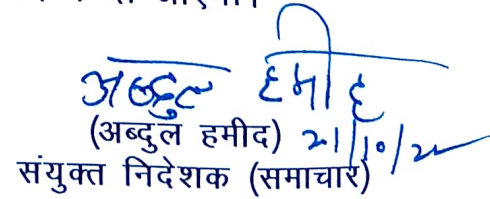 अब्दुल हमीद
(अब्दुल हमीद) 21/10/22
संयुक्त निदेशक (समाचार)